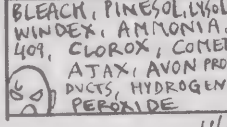 BLEACH, PINESOL, LYSOL
WINDEX, AMMONIA,
409, CLOROX, COMET
AJAX, AVON PRO
DUCTS, HYDROGEN
PEROXIDE